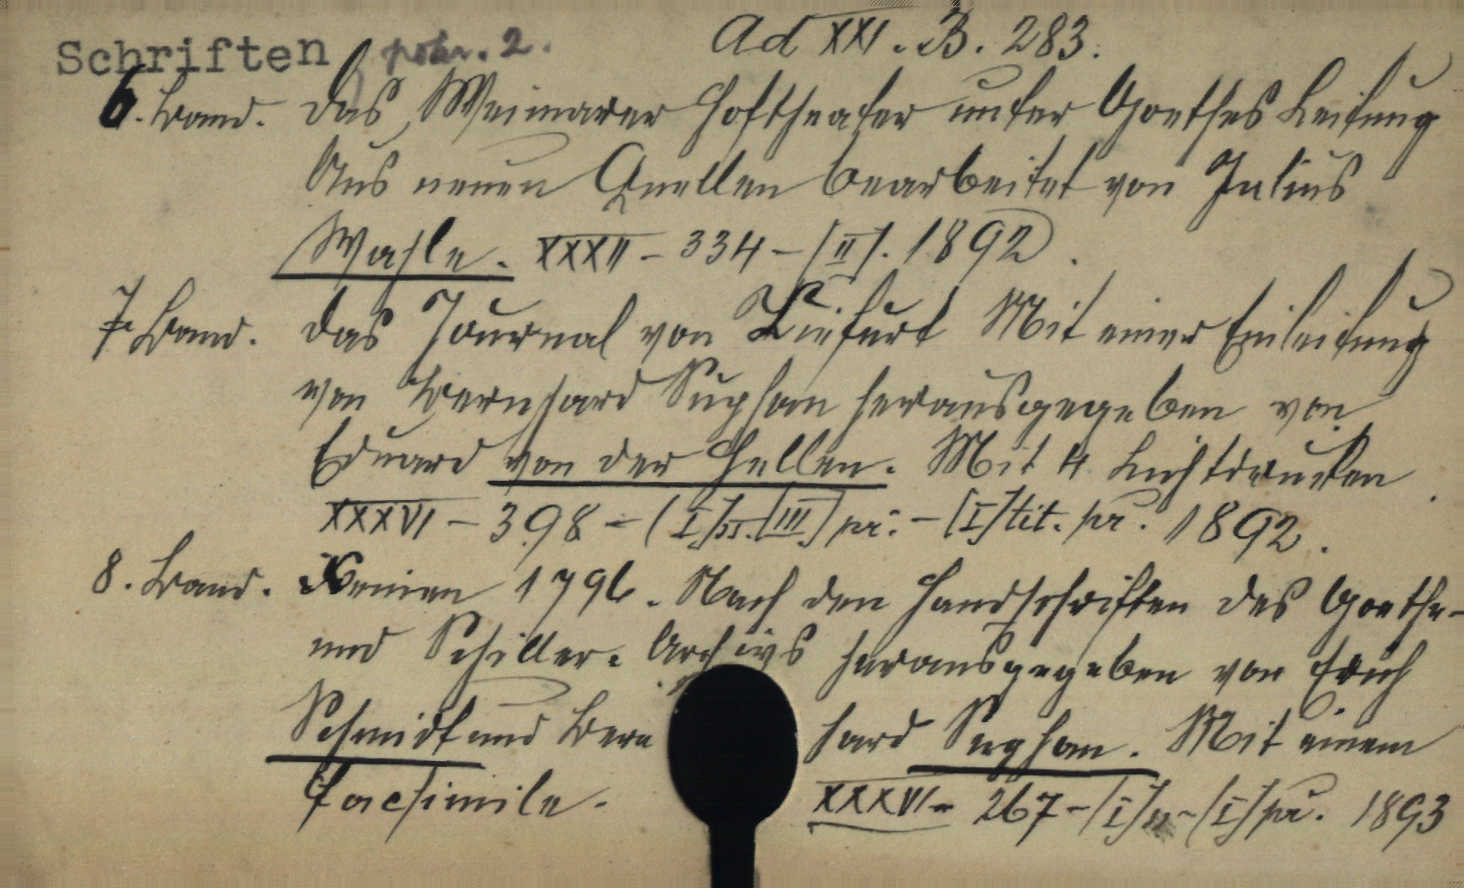 Schriften pokr. 2. Ad XXI. B. 283.
6. Band. Das Weimarer Hoftheater unter Goethes Leitung
Aus neuen Quellen bearbeitet von Julius
Wahle. XXXII - 334 - [II]. 1892.
7. Band. Das Journal von Tiefurt Mit einer Einleitung
von Bernhard Suphan herausgegeben von
Eduard von der Hellen. Mit 4 Lichtdrucken.
XXXVI - 398 - ([I] II. [III] pr. - [I] tit. pr. 1892.
8. Band. Xenien 1796. Nach den Handschriften des Goethe-
und Schiller-Archivs herausgegeben von Erich
Schmidt und Bernhard Suphan. Mit einem
Facsimile. XXXVI - 267 - [I] - [I] pr. 1893